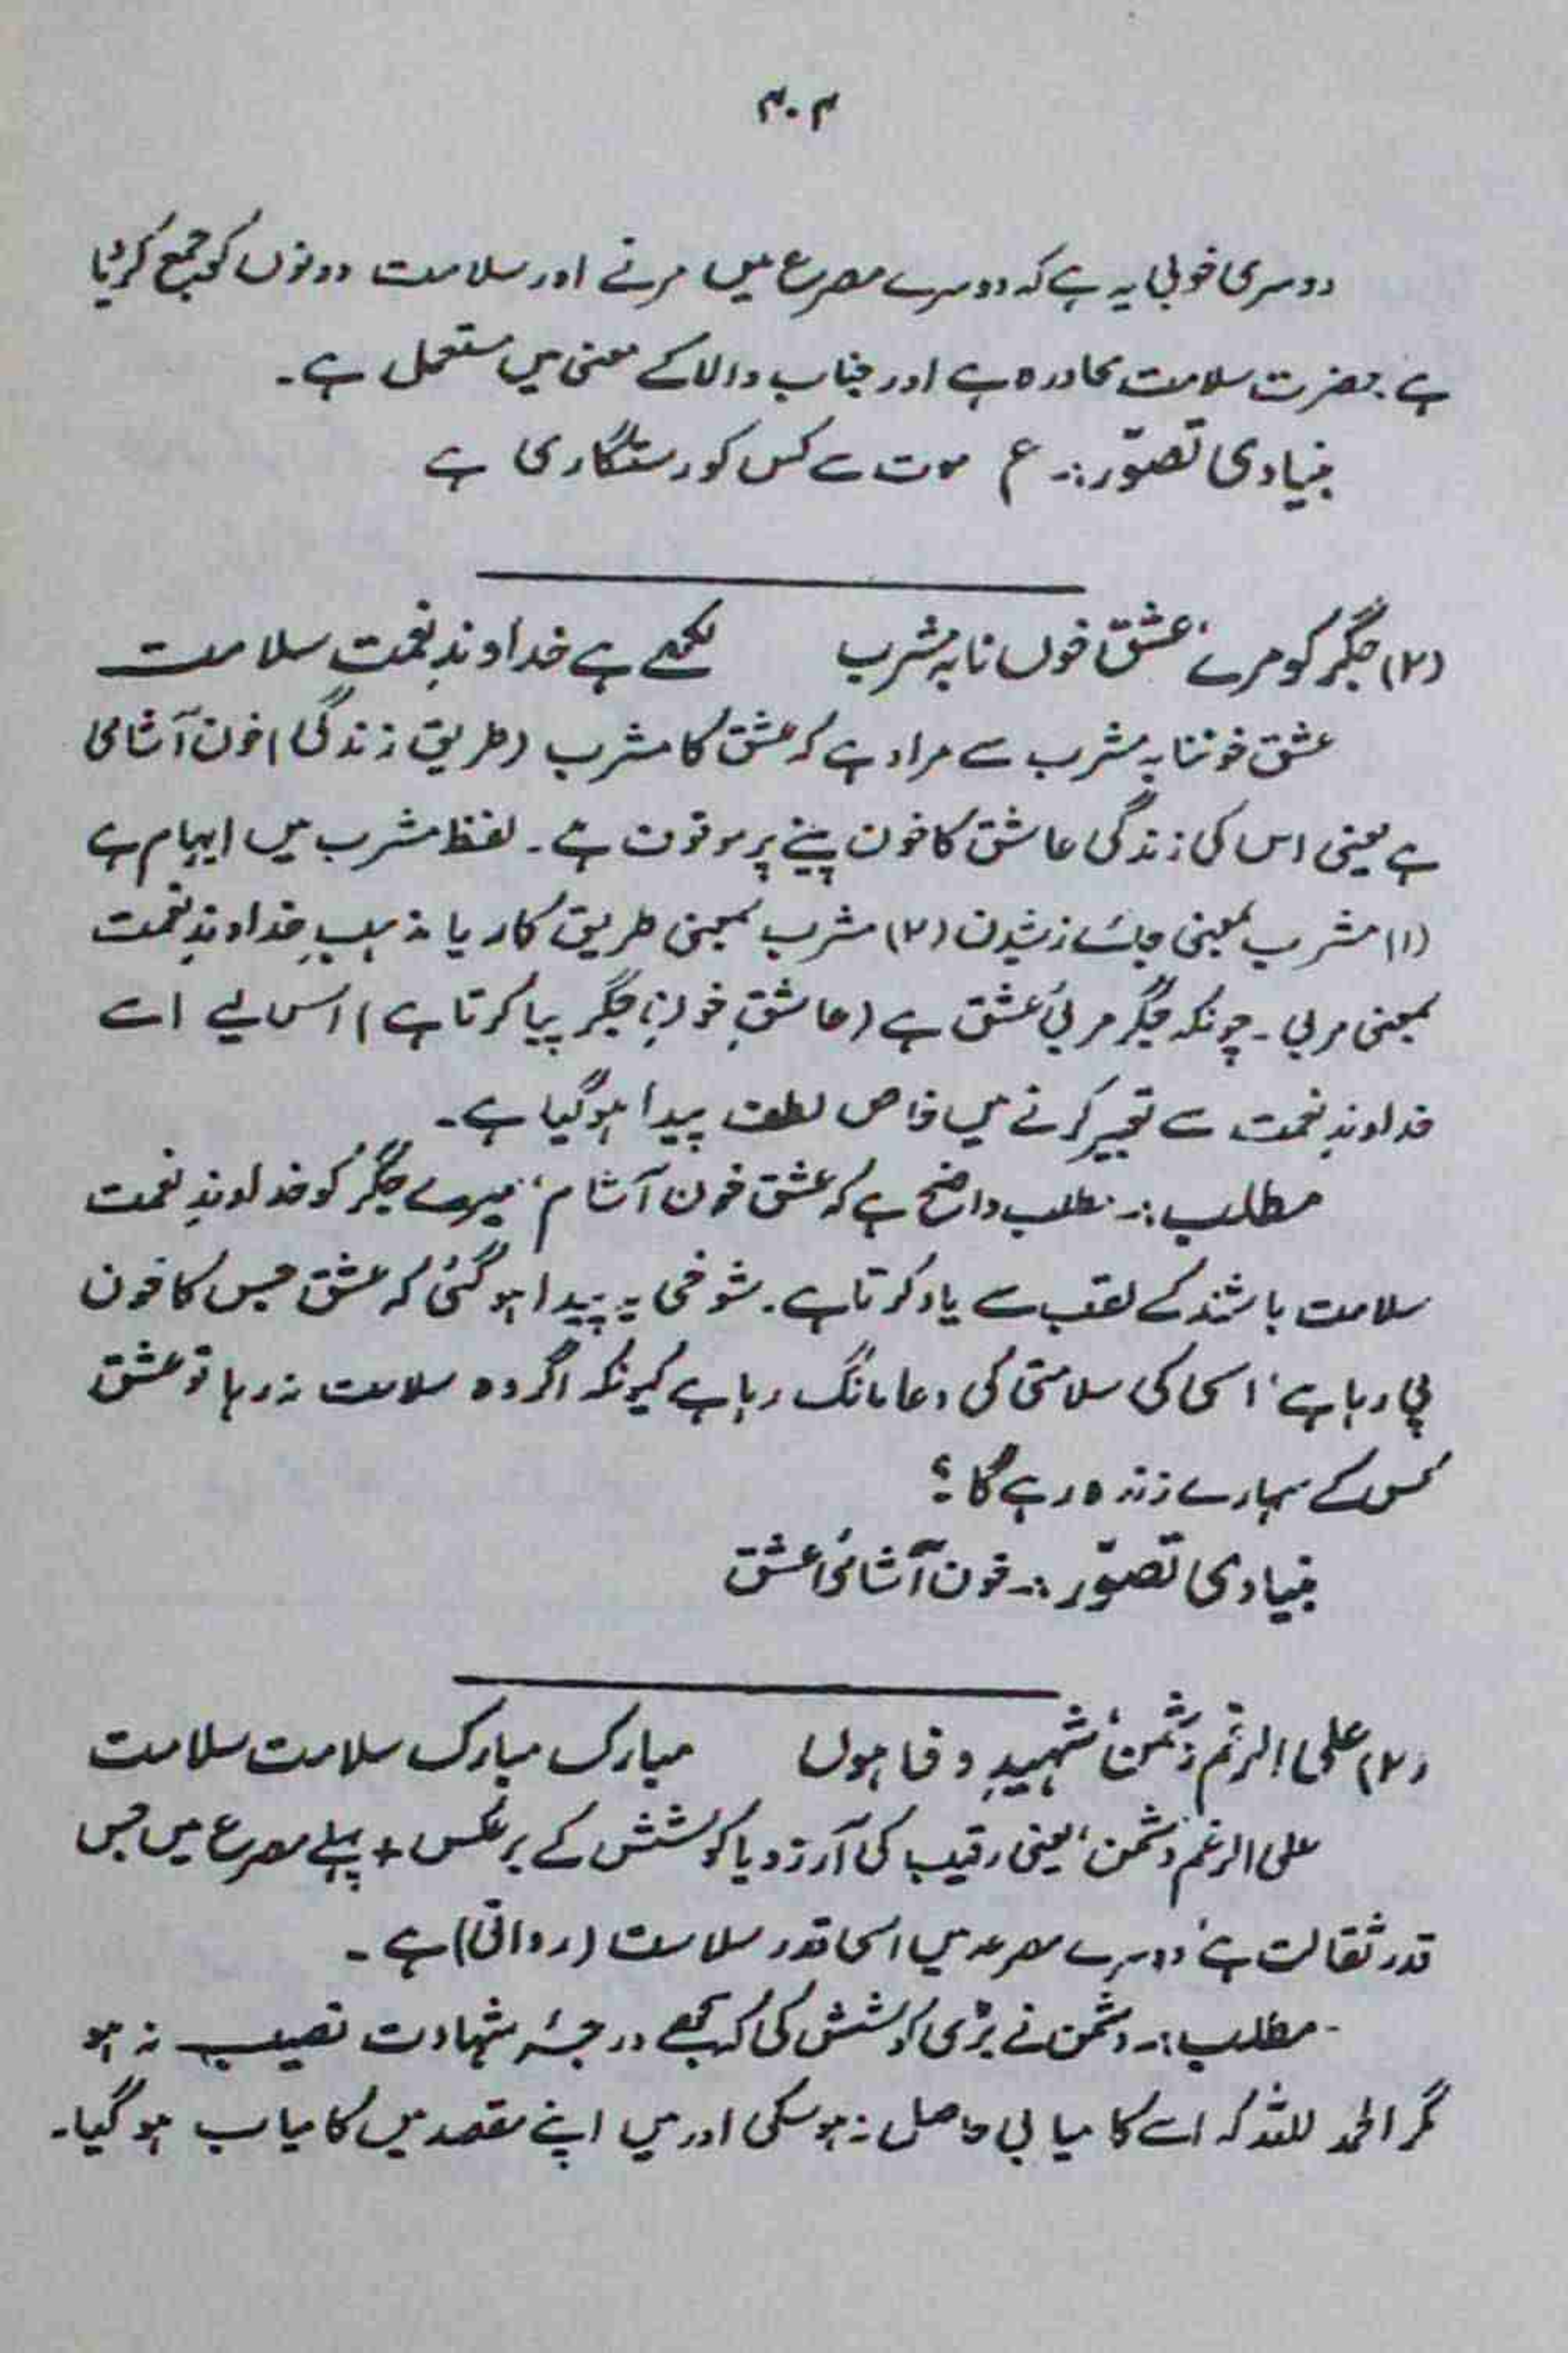 ۳۰۳
دوسری خوبی یہ ہے کہ دوسرے مصرع میں مرنے اور سلامت دونوں کو جمع کر دیا
ہے۔ حضرت سلامت محاورہ ہے اور جناب والا کے معنی میں مستعمل ہے۔
بنیادی تصوّر :۔ ع موت سے کس کو رستگاری ہے
(۲) جگر کو مرے، عشق خوں نابہ مشرب لکھے ہے خداوندِ نعمت سلامت
عشق خوننابہ مشرب سے مراد ہے کہ عشق کا مشرب (طریق زندگی) خون آشامی
ہے یعنی اس کی زندگی عاشق کا خون پینے پر موقوف ہے۔ لفظ مشرب میں ایہام ہے
(۱) مشرب بمعنی جائے نوشیدن (۲) مشرب بمعنی طریق کار یا مذہب، خداوندِ نعمت
بمعنی مربی۔ چونکہ جگر مربیٔ عشق ہے (عاشق، خونِ جگر پیا کرتا ہے) اس لیے اسے
خداوندِ نعمت سے تعبیر کرنے میں خاص لطف پیدا ہو گیا ہے۔
مطلب :۔ مطلب واضح ہے کہ عشق خون آشام، میرے جگر کو خداوندِ نعمت
سلامت باشند کے لقب سے یاد کرتا ہے۔ شوخی یہ پیدا ہو گئی کہ عشق جس کا خون
پی رہا ہے، اسی کی سلامتی کی دعا مانگ رہا ہے کیونکہ اگر وہ سلامت نہ رہا تو عشق
کس کے سہارے زندہ رہے گا؟
بنیادی تصوّر :۔ خون آشامیٔ عشق
(۳) علی الرغم دشمن، شہیدِ وفا ہوں مبارک مبارک سلامت سلامت
علی الرغم دشمن، یعنی رقیب کی آرزو یا کوشش کے برعکس + پہلے مصرع میں جس
قدر ثقالت ہے، دوسرے مصرعہ میں اسی قدر سلاست (روانی) ہے۔
مطلب :۔ دشمن نے بڑی کوشش کی کہ مجھے درجۂ شہادت نصیب نہ ہو
مگر الحمد للہ کہ اسے کامیابی حاصل نہ ہو سکی اور میں اپنے مقصد میں کامیاب ہو گیا۔